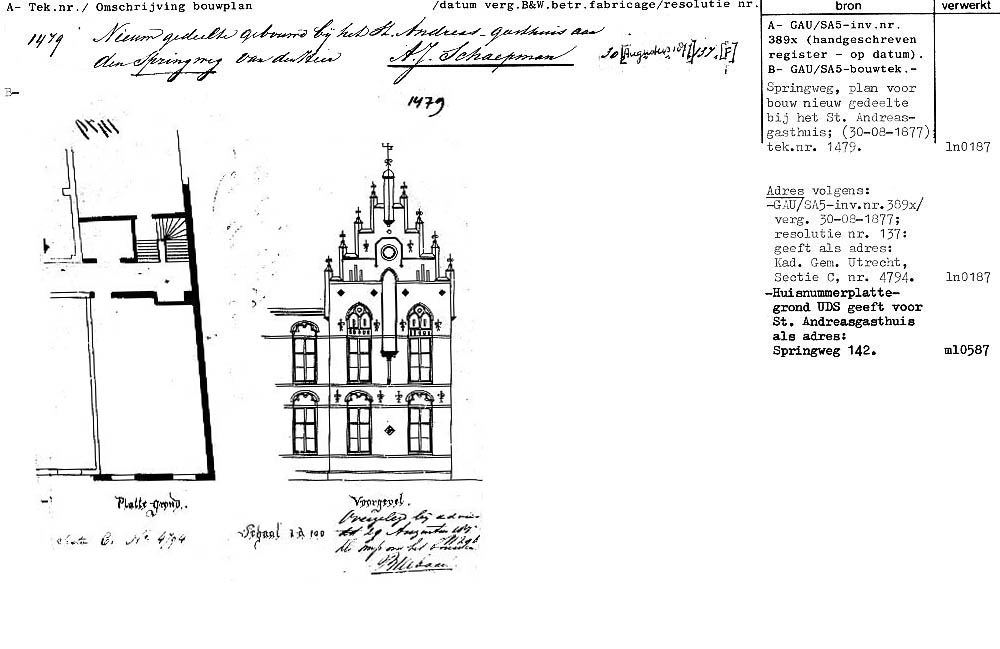 A- Tek.nr./ Omschrijving bouwplan /datum verg.B&W.betr.fabricage/resolutie nr.
bron
verwerkt
1479 Nieuw gedeelte gebouwd bij het St. Andreas-gasthuis aan
den Springweg van den Heer A.J. Schaepman 30 [Augustus 1877] 137. [F]
B-
1479
Platte-grond.
Sectie C. No. 4794
Voorgevel.
Schaal 1 à 100
Overgelegd bij advies
dd 29 Augustus
A- GAU/SA5-inv.nr.
389x (handgeschreven
register - op datum).
B- GAU/SA5-bouwtek.-
Springweg, plan voor
bouw nieuw gedeelte
bij het St. Andreas-
gasthuis; (30-08-1877);
tek.nr. 1479. ln0187
Adres volgens:
-GAU/SA5-inv.nr.389x/
verg. 30-08-1877;
resolutie nr. 137:
geeft als adres:
Kad. Gem. Utrecht,
Sectie C, nr. 4794. ln0187
-Huisnummerplatte-
grond UDS geeft voor
St. Andreasgasthuis
als adres:
Springweg 142. ml0587